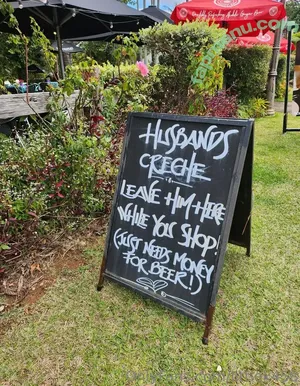 HUSBANDS
CRECHE
LEAVE HIM HERE
WHILE YOU SHOP!
(JUST NEEDS MONEY
FOR BEER!)